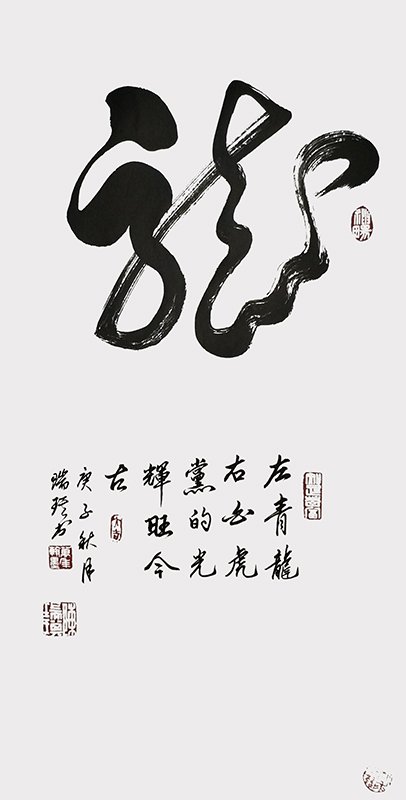 龍
左青龍
右白虎
黨的光
輝旺今
古
庚子秋月
瑞琴書